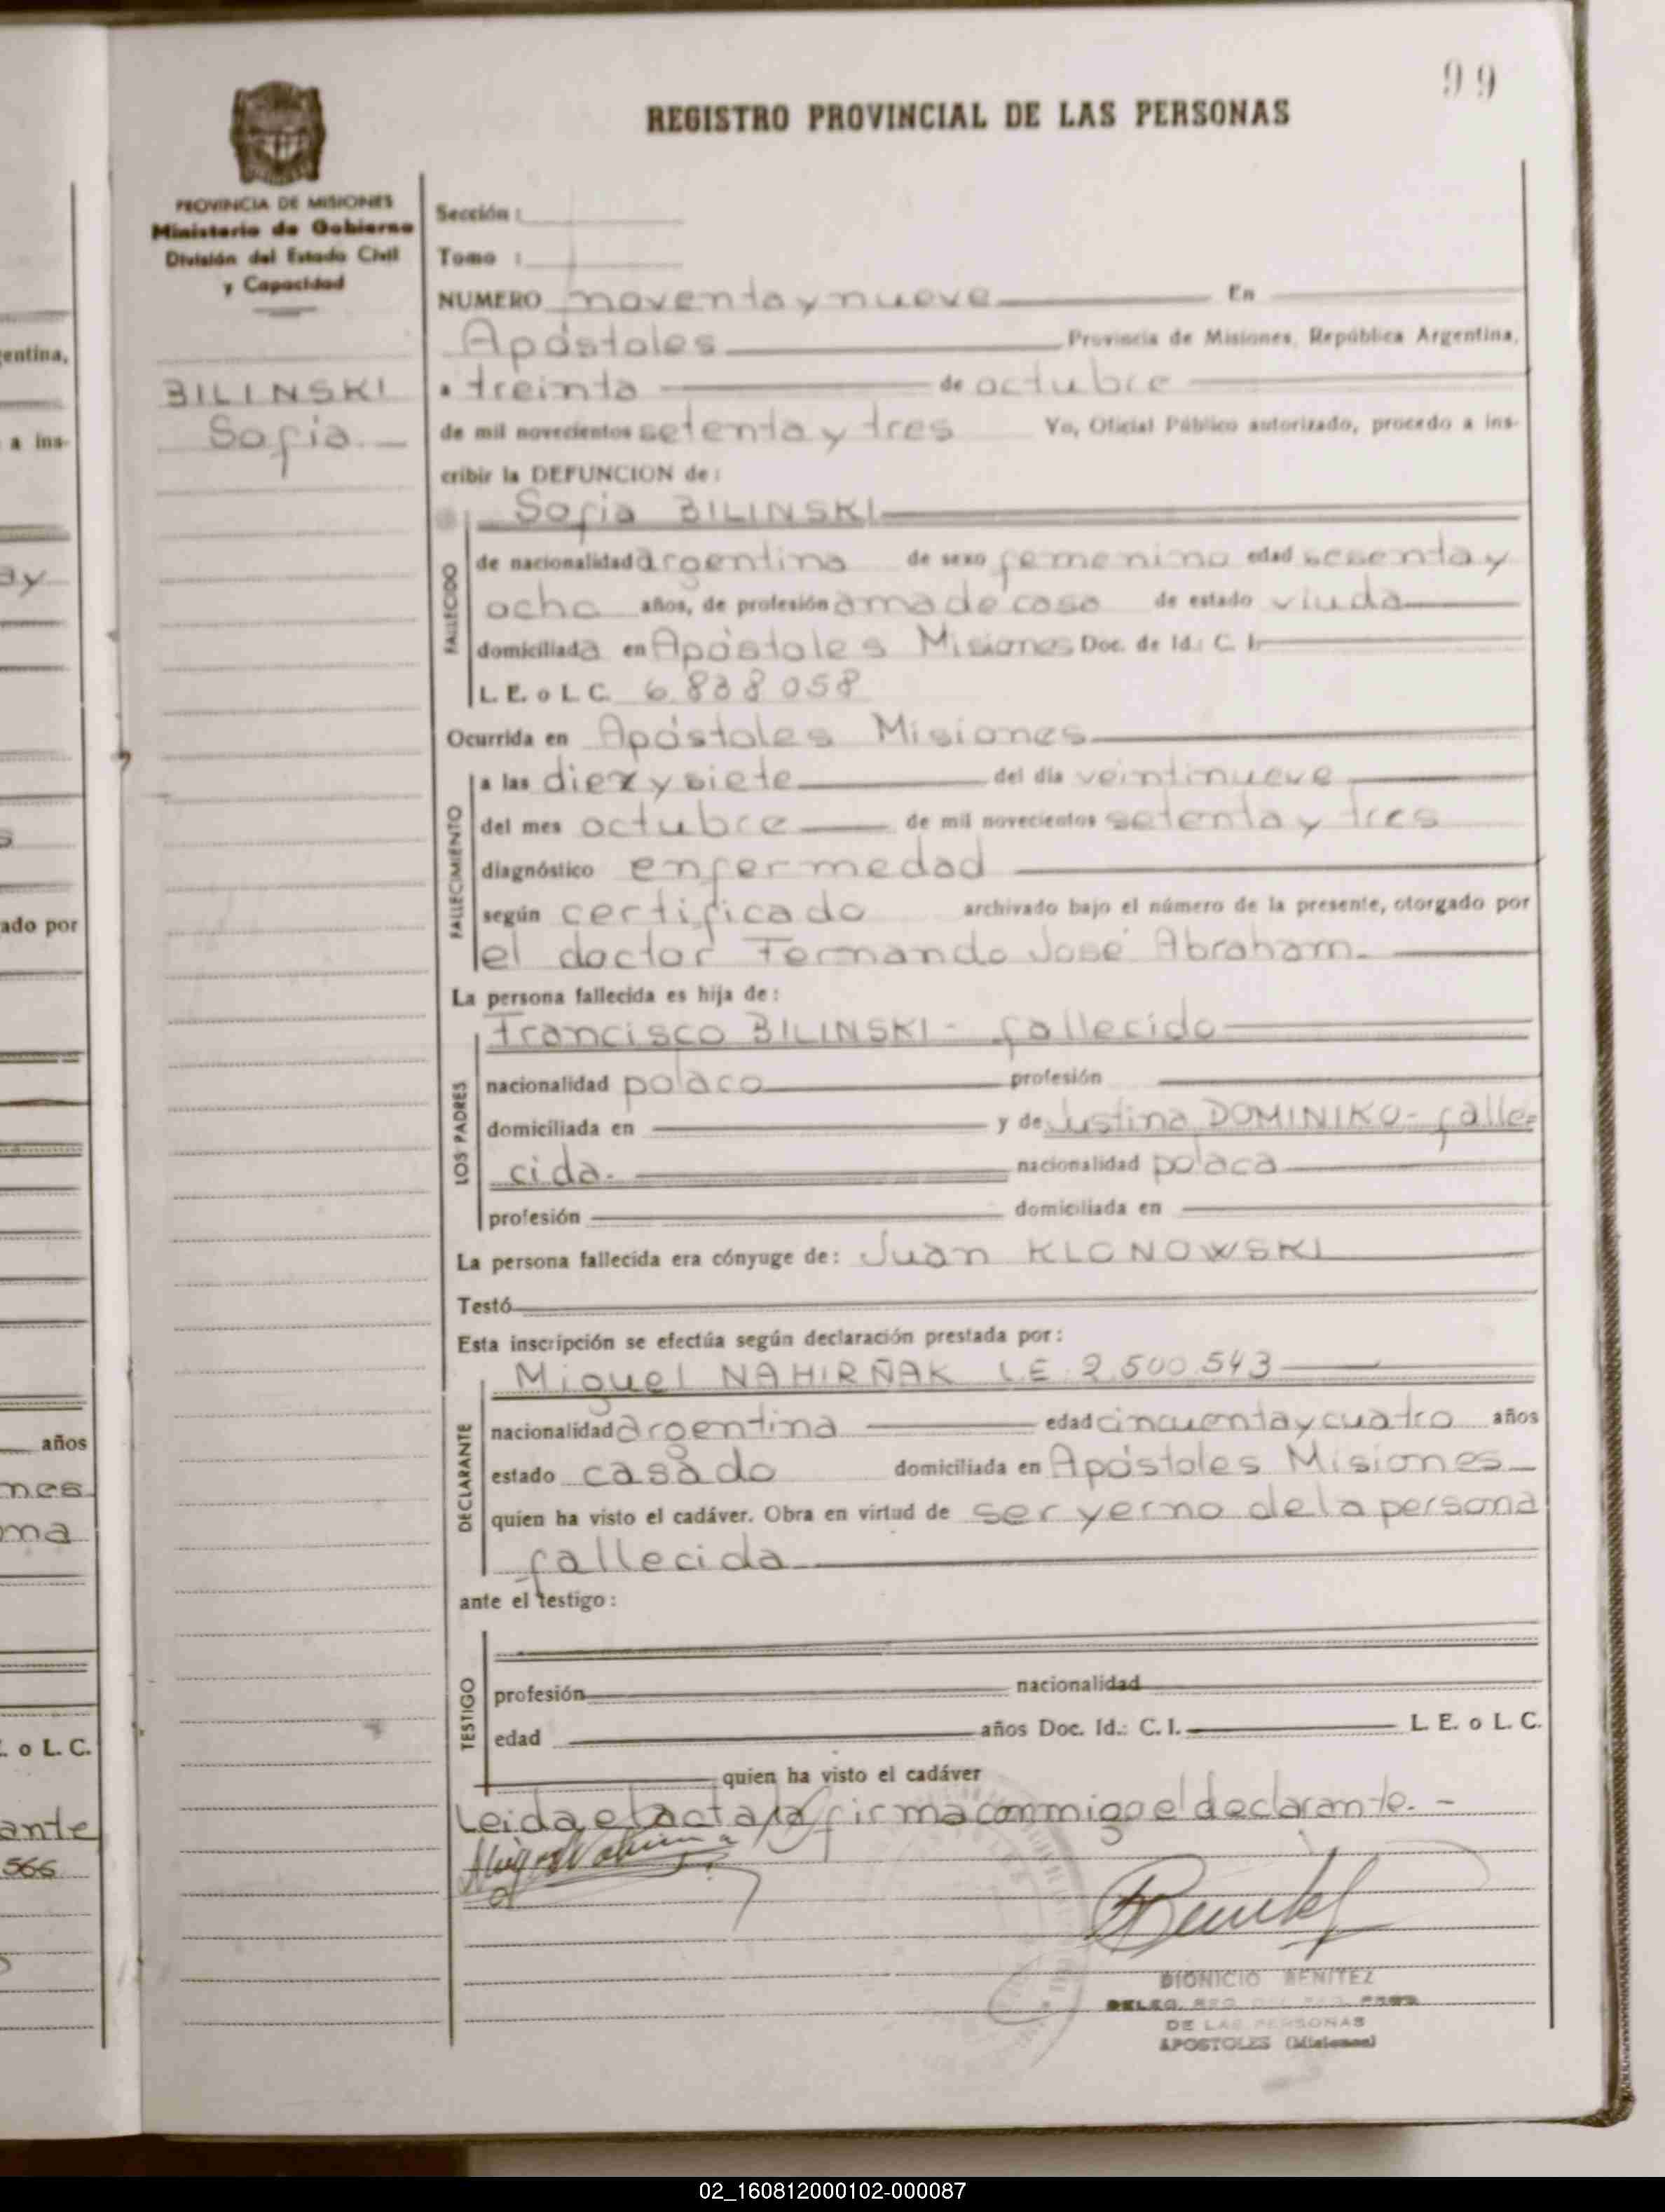 99
REGISTRO PROVINCIAL DE LAS PERSONAS
PROVINCIA DE MISIONES
Ministerio de Gobierno
División del Estado Civil
y Capacidad
BILINSKI
Sofia.
Sección :
Tomo :
NUMERO noventa y nueve En
Apóstoles Provincia de Misiones, República Argentina,
a treinta de octubre
de mil novecientos setenta y tres Yo, Oficial Público autorizado, procedo a ins-
cribir la DEFUNCION de :
Sofia BILINSKI
FALLECIDO
de nacionalidad argentina de sexo femenino edad sesenta y
ocho años, de profesión ama de casa de estado viuda
domiciliada en Apóstoles Misiones Doc. de Id.: C. I.
L. E. o L. C. 6.838.058
Ocurrida en Apóstoles Misiones
FALLECIMIENTO
a las diez y siete del día veintinueve
del mes octubre de mil novecientos setenta y tres
diagnóstico enfermedad
según certificado archivado bajo el número de la presente, otorgado por
el doctor Fernando José Abraham.
La persona fallecida es hija de :
LOS PADRES
Francisco BILINSKI - fallecido
nacionalidad polaco profesión
domiciliada en y de Justina DOMINIKO - falle-
cida. nacionalidad polaca
profesión domiciliada en
La persona fallecida era cónyuge de : Juan KLONOWSKI
Testó
Esta inscripción se efectúa según declaración prestada por :
DECLARANTE
Miguel NAHIRÑAK L.E. 2.500.543
nacionalidad argentina edad cincuenta y cuatro años
estado casado domiciliada en Apóstoles Misiones
quien ha visto el cadáver. Obra en virtud de ser yerno de la persona
fallecida
ante el testigo :
TESTIGO
profesión nacionalidad
edad años Doc. Id.: C. I. L. E. o L. C.
quien ha visto el cadáver
Leida el acta la firma conmigo el declarante. -
DIONICIO BENITEZ
DE LAS PERSONAS
APOSTOLES (Misiones)
entina,
a ins-
ay
ado por
años
nes
ona
. o L. C.
ante
566
02_160812000102-000087